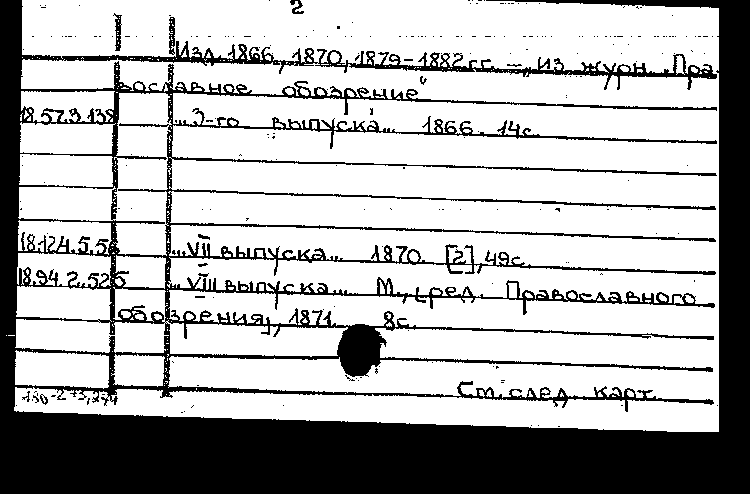 2
Изд. 1866, 1870, 1879-1882 гг. – „Из журн. „Пра-
вославное обозрение"
18.57.3.138 ...3-го выпуска... 1866. 14с.
18.124.5.56 ...VII выпуска... 1870. [2], 49с.
18.94.2.525 ...VIII выпуска... М., [ред. Православного
обозрения], 1871. 8с.
См. след. карт.